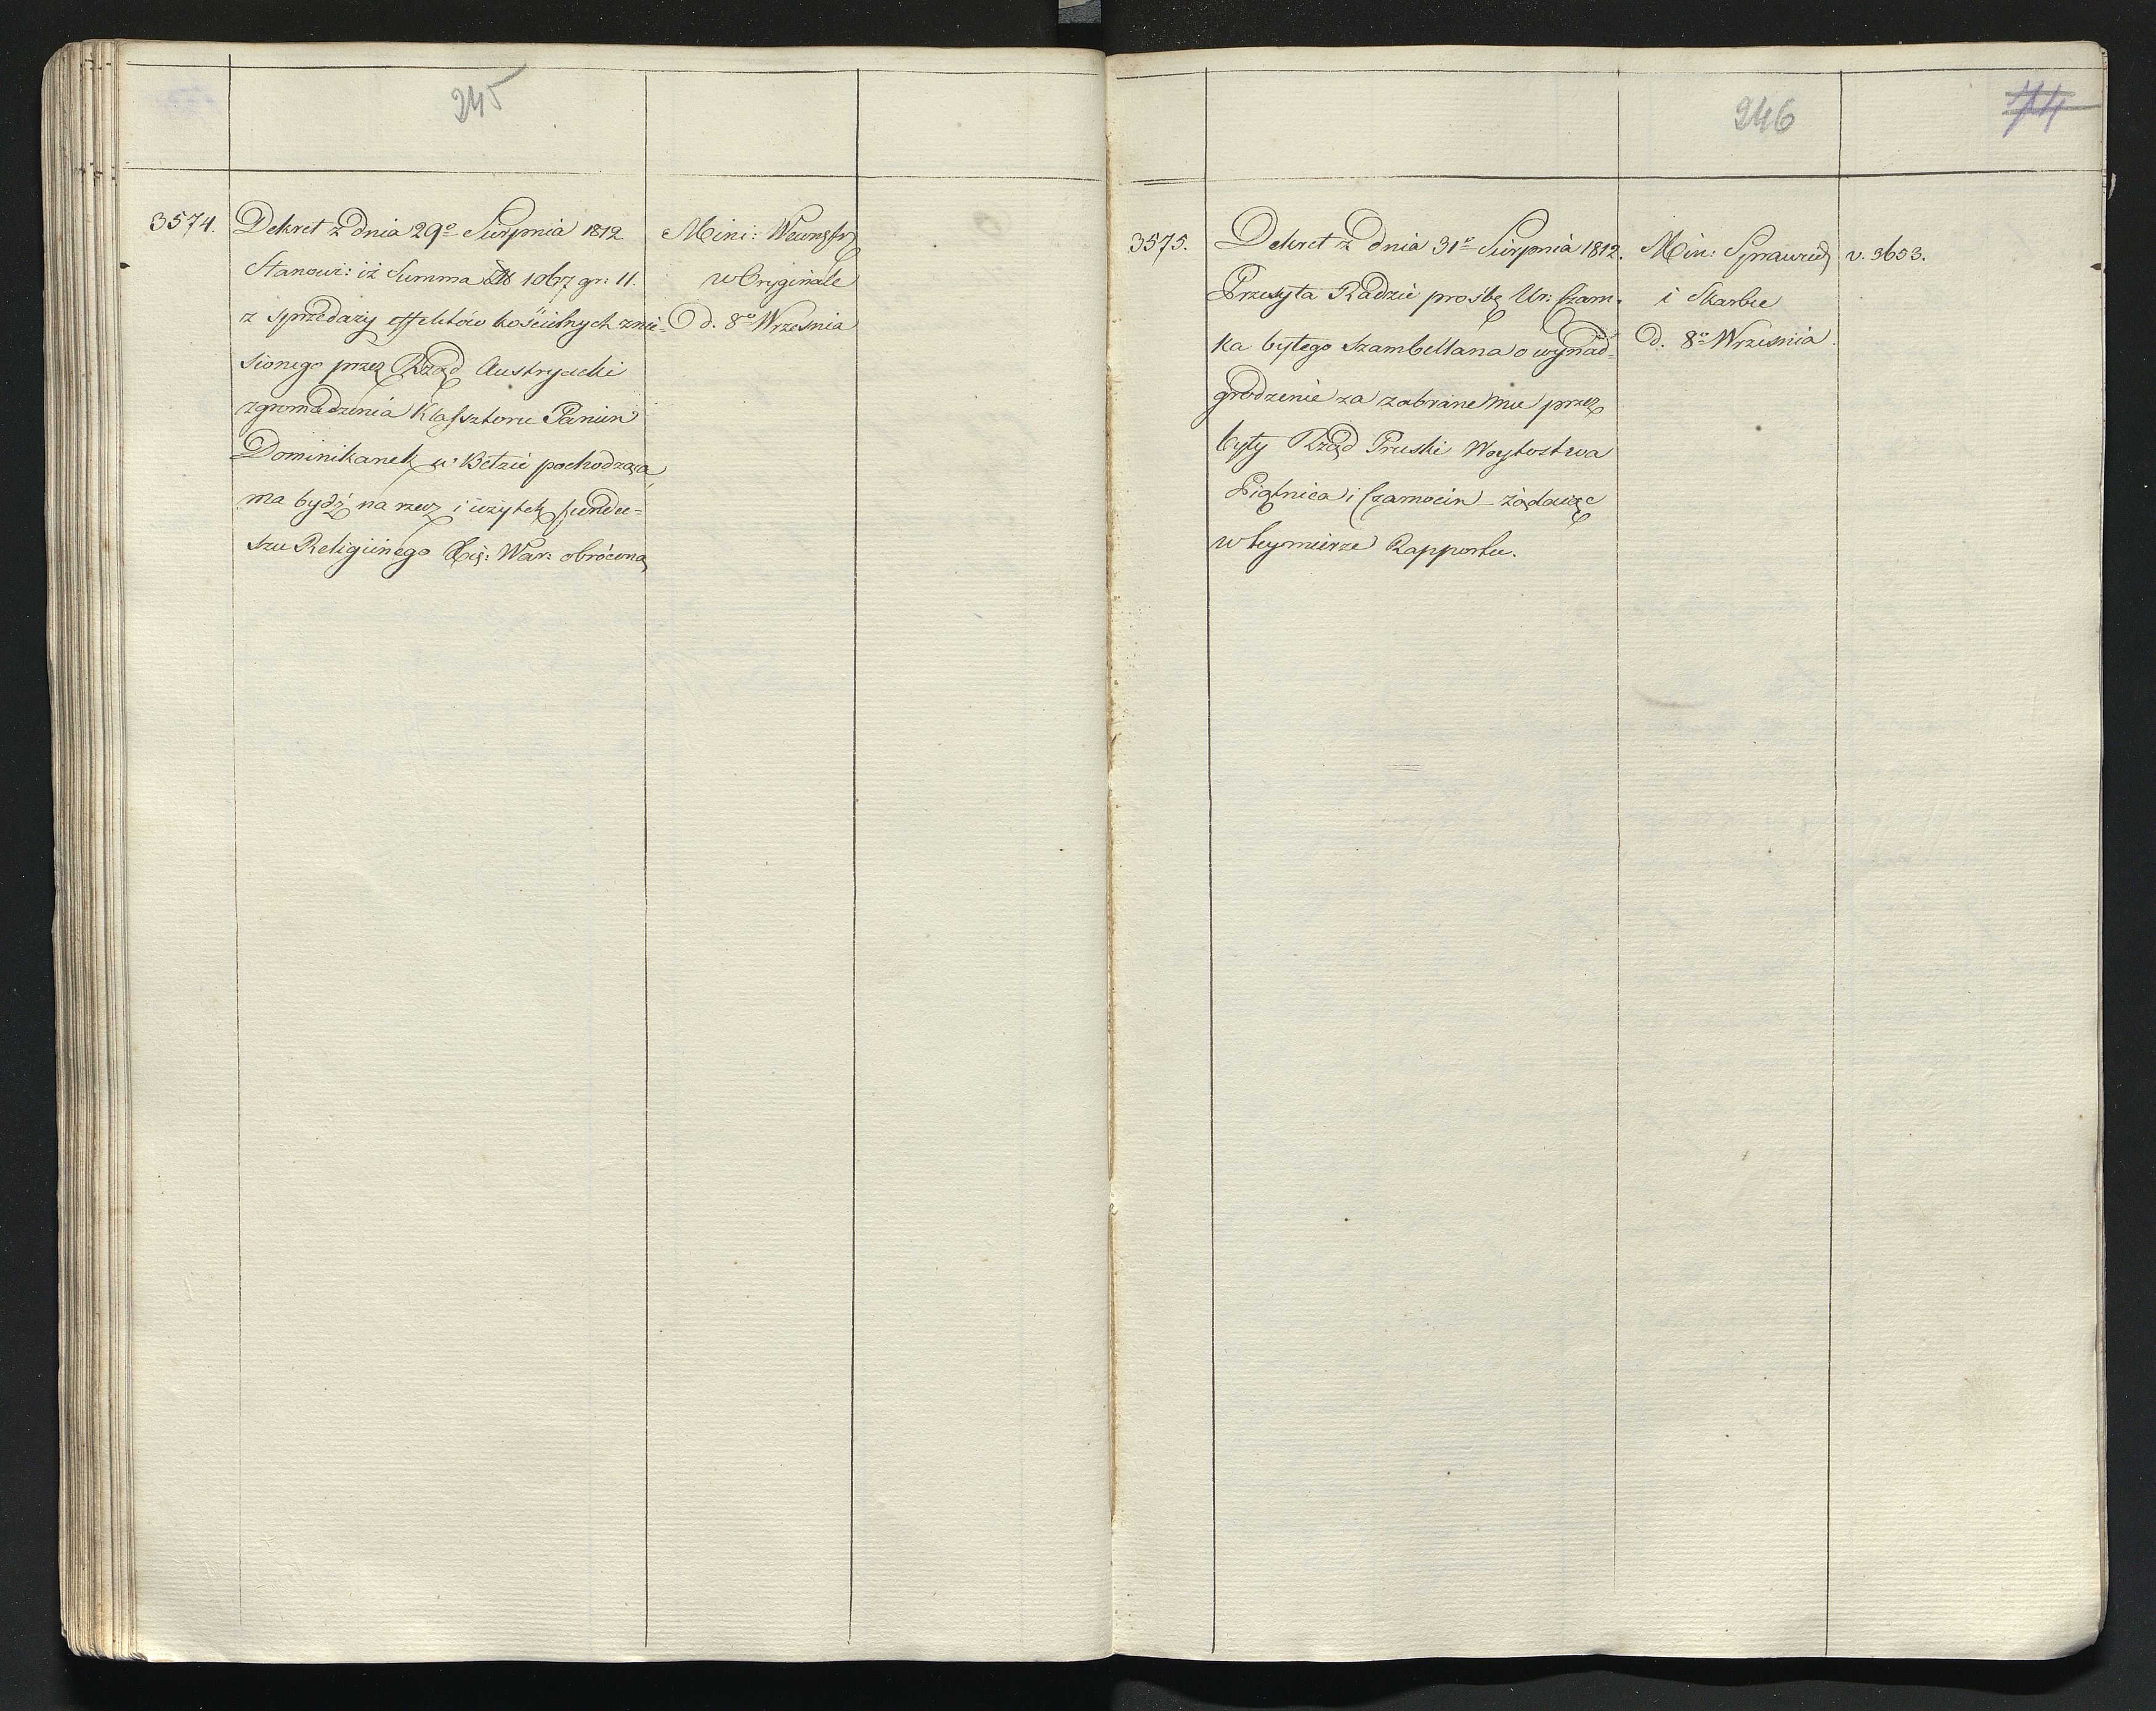 245
3574.
Dekret z dnia 29º Sierpnia 1812
Stanowi: iż Summa 1067 gr: 11.
z sprzedaży effektów kościelnych znie-
sionego przez Rząd Austryacki
zgromadzenia Klasztoru Panien
Dominikanek w Bełzie pochodząca
ma bydź na rzecz i użytek fundu=
szu Religiinego Xię: War: obrócona
Mini: Wewnętr
w Oryginale
D. 8º Września
246
74
3575.
Dekret z dnia 31º Sierpnia 1812.
Przesyła Radzie prośbę Ur: Czam-
ka byłego Szambellana o wynad-
grodzenie za zabrane mu przez
były Rząd Pruski Woytostwa
Piątnica i Czarnocin – żądaiąc
w tey mierze Rapportu.
Min: Sprawied
i Skarbu
D. 8º Września
v. 3653.